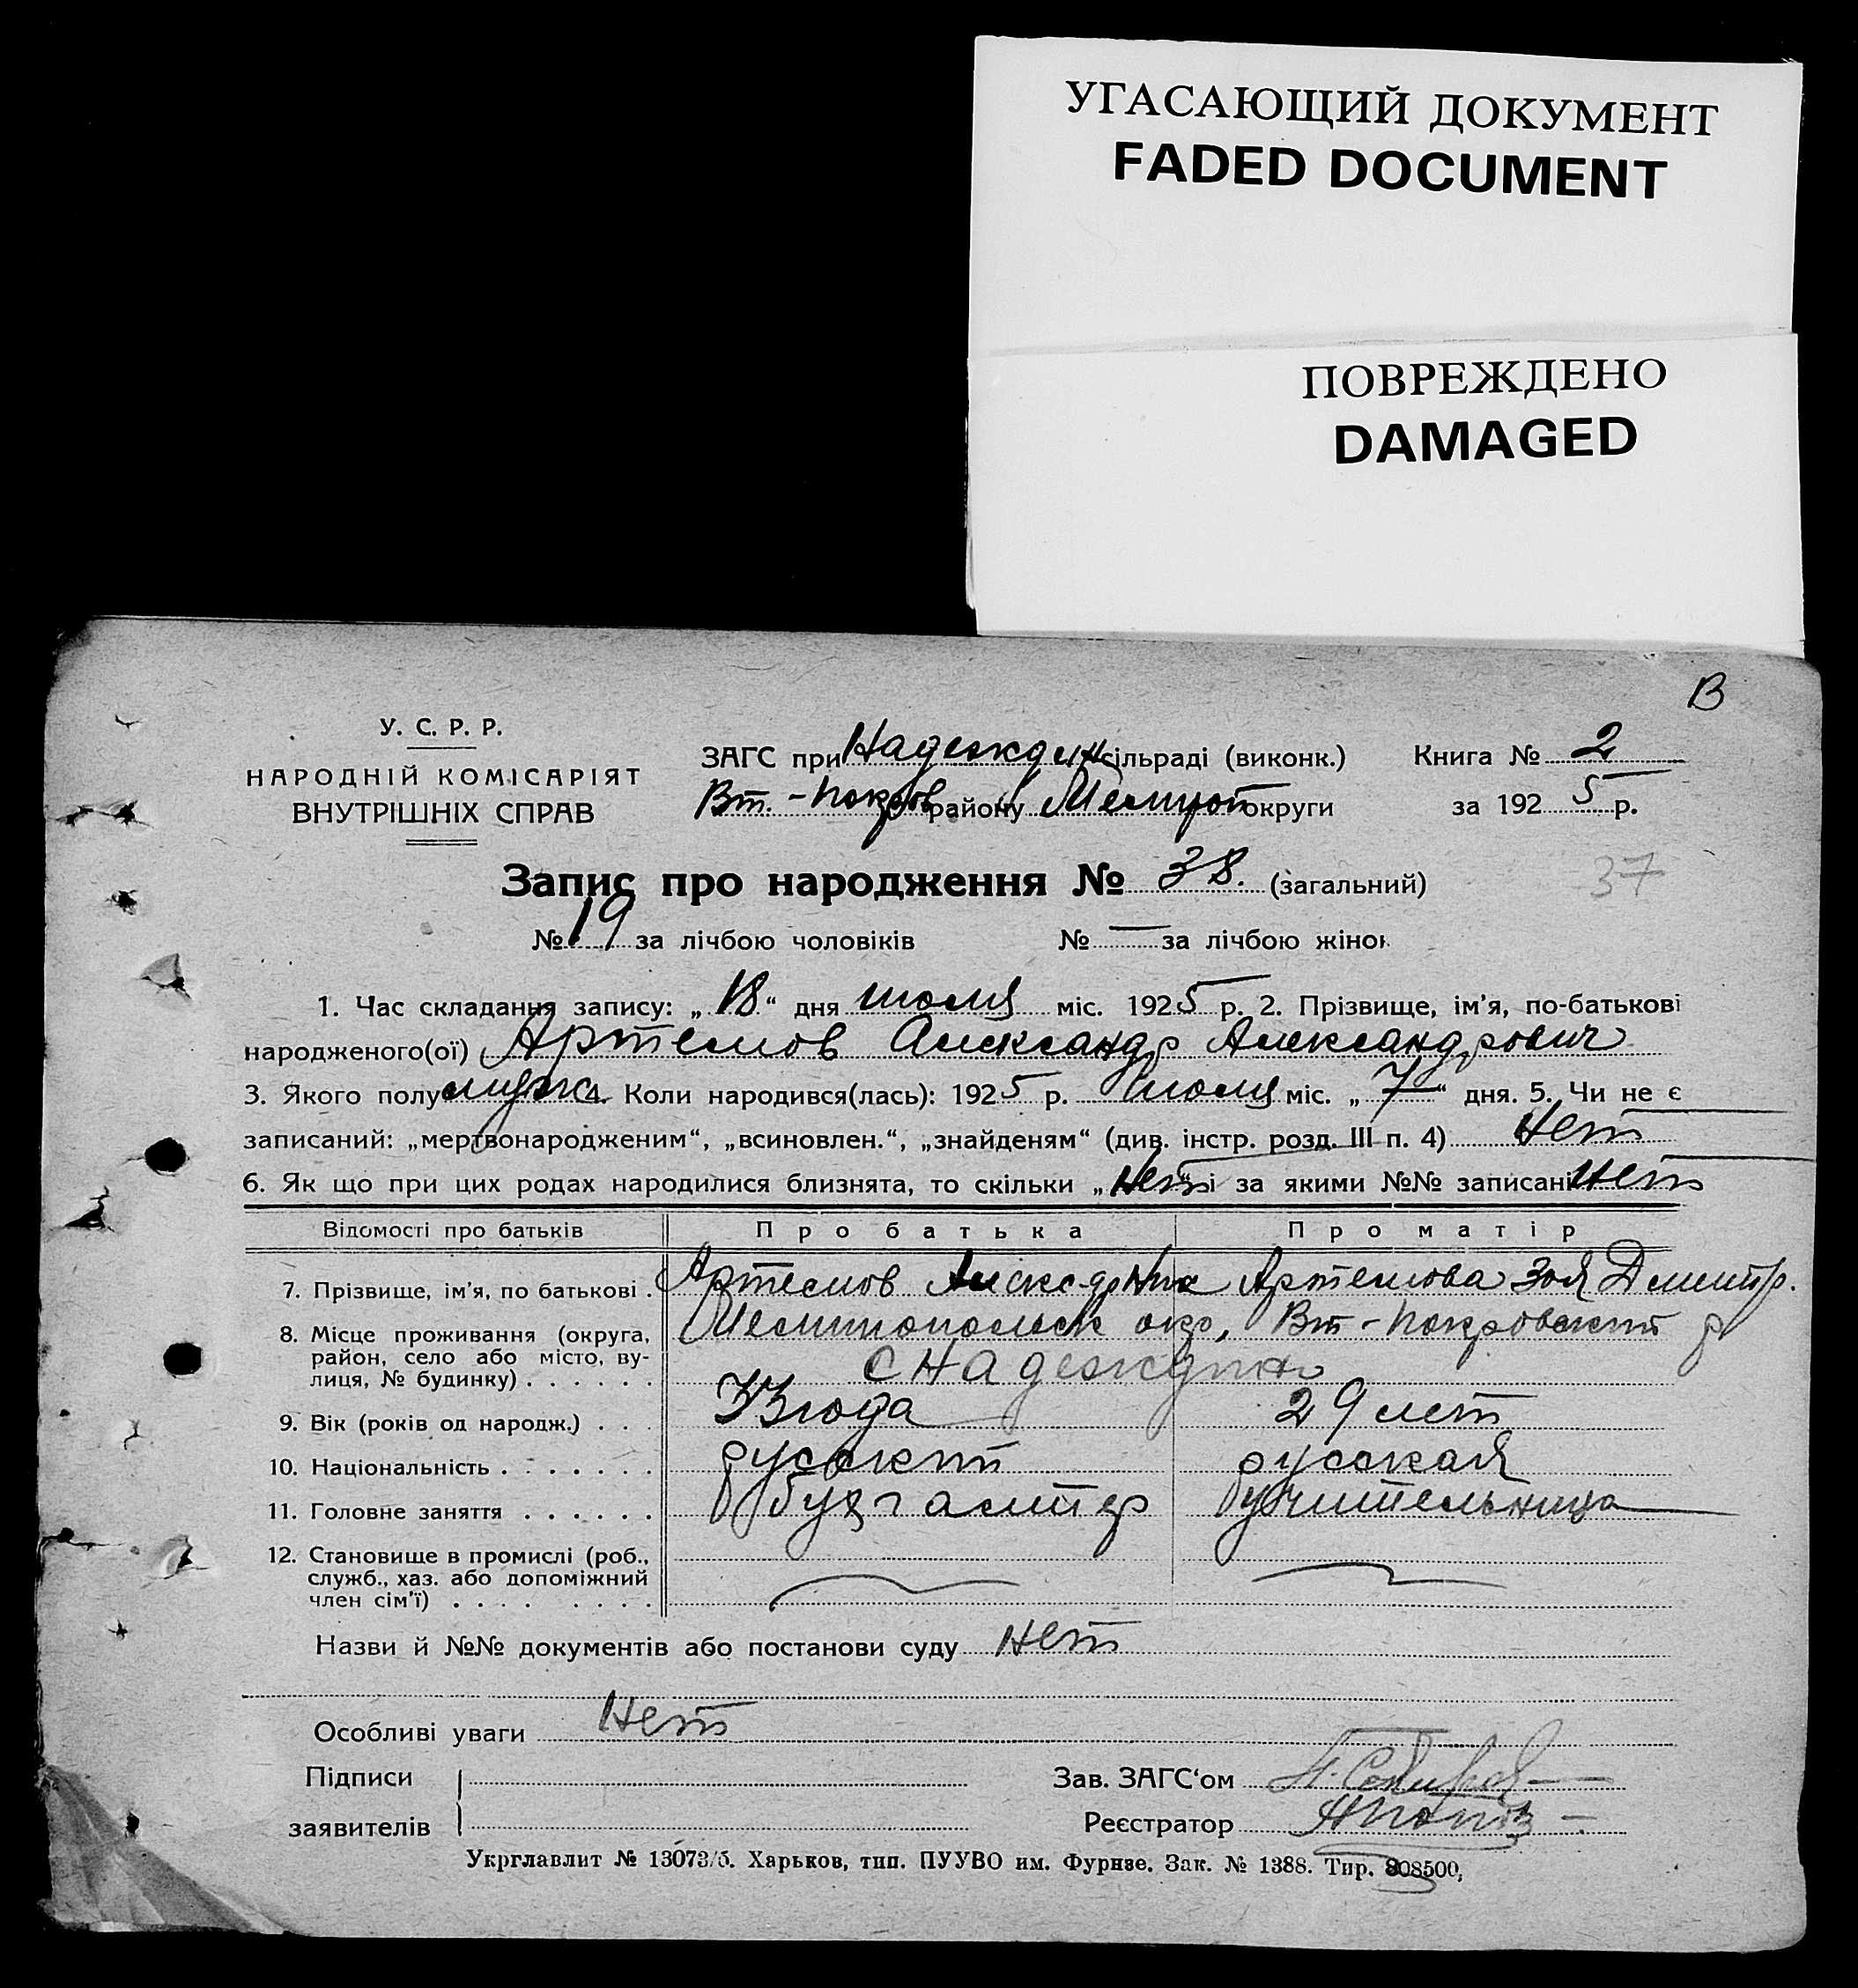 УГАСАЮЩИЙ ДОКУМЕНТ
FADED DOCUMENT
ПОВРЕЖДЕНО
DAMAGED
В
У. С. Р. Р.
НАРОДНІЙ КОМІСАРІЯТ
ВНУТРІШНІХ СПРАВ
ЗАГС при Надеждин сільраді (виконк.) Книга № 2
Вт.-Покров району Мелитоп округи за 1925 р.
Запис про народження № 38. (загальний)
37
№ 19 за лічбою чоловіків № — за лічбою жінок
1. Час складання запису: „18“ дня июля міс. 1925 р. 2. Прізвище, ім'я, по-батькові
народженого(ої) Артемов Александр Александрович
3. Якого полу муж 4. Коли народився(лась): 1925 р. июля міс. „7“ дня. 5. Чи не є
записаний: „мертвонародженим“, „всиновлен.“, „знайденям“ (див. інстр. розд. III п. 4) Нет
6. Як що при цих родах народилися близнята, то скільки „Нет“ і за якими №№ записані Нет
Відомості про батьків Про батька Про матір
7. Прізвище, ім'я, по батькові . Артемов Алекс-др Ник Артемова Зоя Дмитр.
8. Місце проживання (округа, район, село або місто, вулиця, № будинку) . . . . . . Мелитопольск окр, Вт-Покровский р
с Надеждин
9. Вік (років од народж.) . . . 33 года 29 лет
10. Національність . . . . . . . русский русская
11. Головне заняття . . . . . . бухгалтер учительница
12. Становище в промислі (роб., служб., хаз. або допоміжний член сім'ї) . . . . . . . .
Назви й №№ документів або постанови суду Нет
Особливі уваги Нет
Підписи
заявителів
Зав. ЗАГС‘ом
Реєстратор
Укрглавлит № 13073/б. Харьков, тип. ПУУВО им. Фрунзе. Зак. № 1388. Тир. 808500,